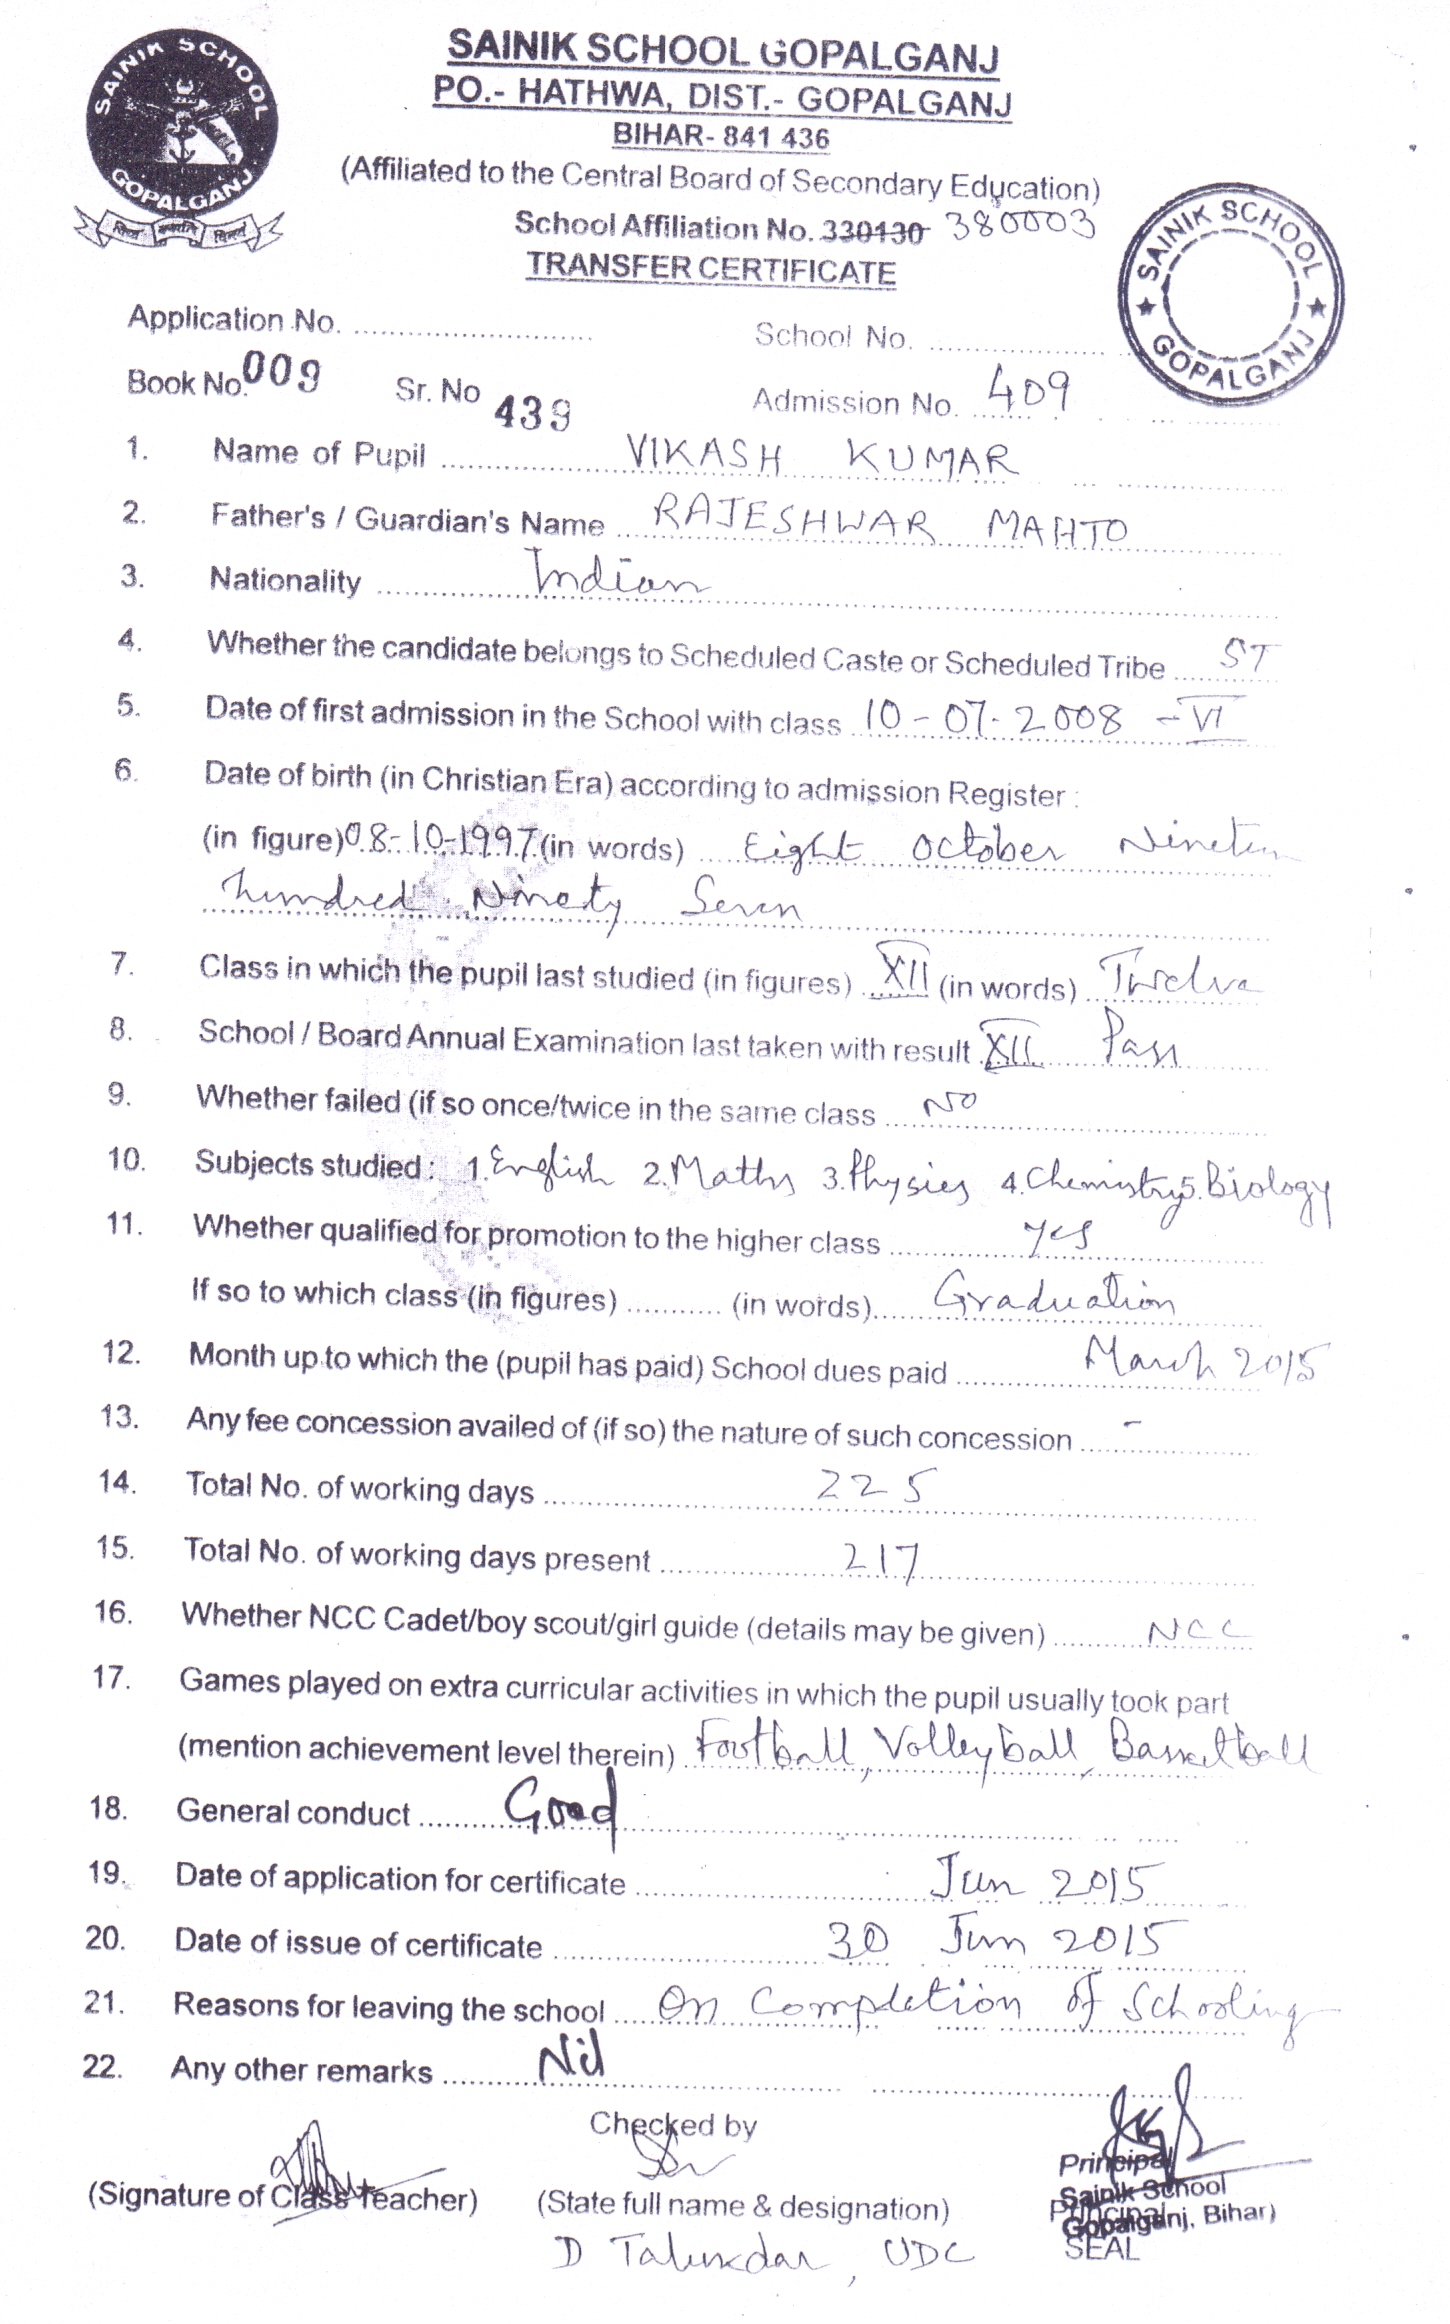 SAINIK SCHOOL GOPALGANJ
SAINIK SCHOOL GOPALGANJ
PO.- HATHWA, DIST.- GOPALGANJ
BIHAR- 841 436
(Affiliated to the Central Board of Secondary Education)
School Affiliation No. 330130 380003
SAINIK SCHOOL GOPALGANJ
TRANSFER CERTIFICATE
Application No. School No.
Book No. 009 Sr. No 439 Admission No. 409
1. Name of Pupil VIKASH KUMAR
2. Father's / Guardian's Name RAJESHWAR MAHTO
3. Nationality Indian
4. Whether the candidate belongs to Scheduled Caste or Scheduled Tribe ST
5. Date of first admission in the School with class 10-07-2008 - VI
6. Date of birth (in Christian Era) according to admission Register :
(in figure) 08-10-1997 (in words) Eight October Nineteen
hundred Ninety Seven
7. Class in which the pupil last studied (in figures) XII (in words) Twelve
8. School / Board Annual Examination last taken with result XII Pass
9. Whether failed (if so once/twice in the same class NO
10. Subjects studied : 1. English 2. Maths 3. Physics 4. Chemistry 5. Biology
11. Whether qualified for promotion to the higher class Yes
If so to which class (in figures) (in words) Graduation
12. Month up to which the (pupil has paid) School dues paid March 2015
13. Any fee concession availed of (if so) the nature of such concession -
14. Total No. of working days 225
15. Total No. of working days present 217
16. Whether NCC Cadet/boy scout/girl guide (details may be given) NCC
17. Games played on extra curricular activities in which the pupil usually took part
(mention achievement level therein) Football, Volleyball, Basketball
18. General conduct Good
19. Date of application for certificate Jun 2015
20. Date of issue of certificate 30 Jun 2015
21. Reasons for leaving the school On Completion of Schooling
22. Any other remarks Nil
Checked by
(Signature of Class Teacher) (State full name & designation)
D Talukdar, UDC
Principal
Sainik School
Gopalganj, Bihar)
Principal
SEAL